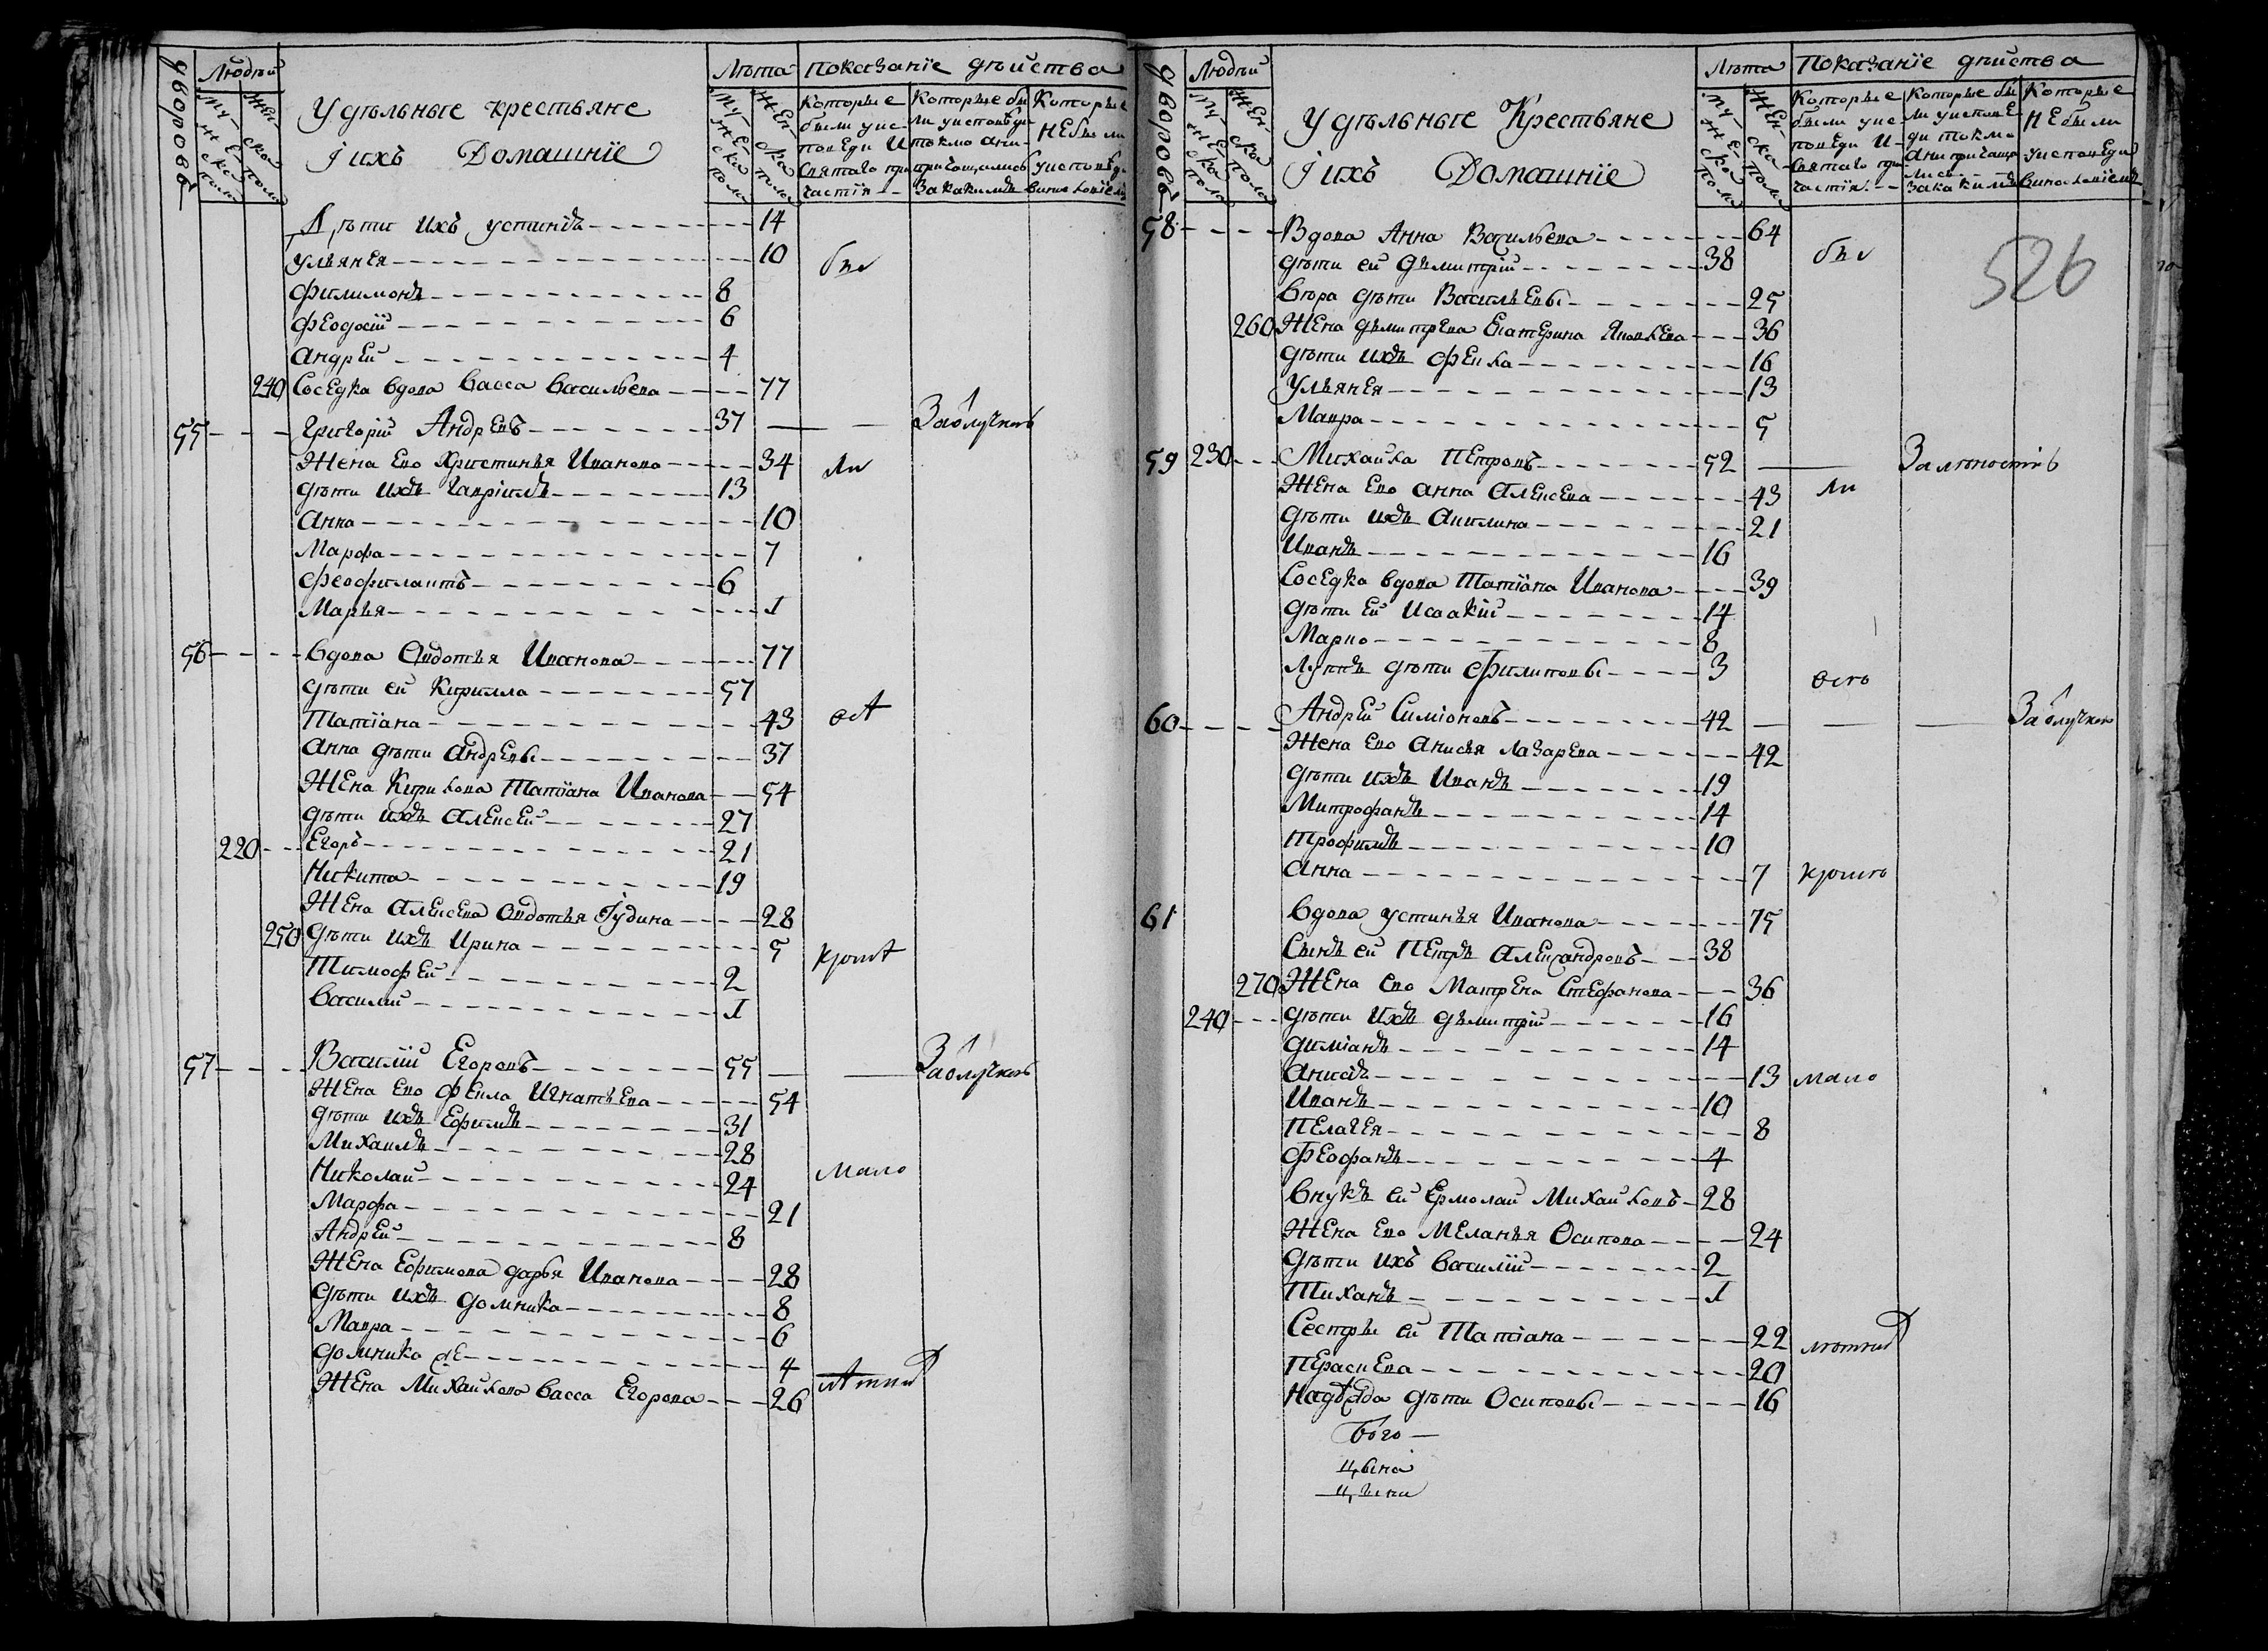 дворовъ
Людѣй
Мужескаго полу
Женскаго полу
Удѣльные крестьяне
Iихъ Домашнiе
Лѣта
Мужеска пола
Женска пола
показанiе дѣйства
Которые были у исповеди и святаго причастiя
Которые были у исповѣди токмо а не причащались за какимъ
Которые не были у исповѣди
Дѣти ихъ устинiѣ 14
Ульянея 10 бы
Филимонъ 8
Феодосiй 6
Андрей 4
240 Соседка вдова Васса Васильева 77
55 Григорiй Андреевъ 37 За отлучкою
Жена Ево Христинья Иванова 34 ли
Дѣти ихъ Гаврiилъ 13
Анна 10
Марфа 7
Феофилактъ 6
Марья 1
56 Вдова Овдотья Иванова 77
Дѣти ей Кирилла 57
Татiана 43 всѣ
Анна дѣти Андреевы 37
Жена Кирилова Татiана Иванова 54
Дѣти ихъ Алексей 27
220 Егоръ 21
Никита 19
Жена Алексева Овдотья Iудина 28
250 Дѣти ихъ Ирина 5 кромѣ
Тимофей 2
Василий 1
57 Василiй Егоровъ 55 За отлучкою
Жена Ево Фекла Игнатьева 54
Дѣти ихъ Ефимъ 31
Михаилъ 28
Николай 24 мало
Марфа 21
Андрей 8
Жена Ефимова дарья Иванова 28
Дѣти ихъ домника 8
Мавра 6
домника 4
Жена Михайлова Васса Егорова 26 лѣтныхъ
дворовъ
Людѣй
Удѣльные Крестьяне
Iихъ Домашнiе
Лѣта
Показанiе дѣйства
Которые были у исповеди и святаго причастiя
Которые бы ли у исповеди токмо а не причащались за какимъ
Которые не были у исповеди
526
58 Вдова Анна Васильева 64
дѣти ей дѣмитрiй 38 бы
Вѣра дѣти Васильевы 25
260 Жена дѣмитрева Екатерина Яковлева 36
дѣти ихъ Фекла 16
Ульянея 13
Мавра 5
59 230 Михайла Петровъ 52 За лѣностiю
Жена Ево Анна Алексева 43 ли
Дѣти ихъ Акилина 21
Иванъ 16
Соседка вдова Татiана Иванова 39
Дѣти ей Исаакiй 14
Марко 8
Луппъ дѣти Филиповы 3 всѣ
60 Андрей Симiоновъ 42 За отлучкою
Жена Ево Анисья Лазарева 42
Дѣти ихъ Иванъ 19
Митрофанъ 14
Трофимъ 10
Анна 7 кромѣ
61 Вдова устинья Иванова 75
Сынъ ей Петръ Александровъ 38
270 Жена Ево Матрена Стефанова 36
240 Дѣти ихъ дѣмитрiй 16
димiанъ 14
13 мало
Иванъ 10
Пелагея 8
Феофанъ 4
Внукъ ей Ермолай Михайловъ 28
Жена Ево Меланья Осипова 24
Дѣти ихъ Василiй 2
Тиханъ 1
Сестры ей Татiана 22 лѣтныхъ
Пераскева 20
Надѣжда дѣти Осиповы 16